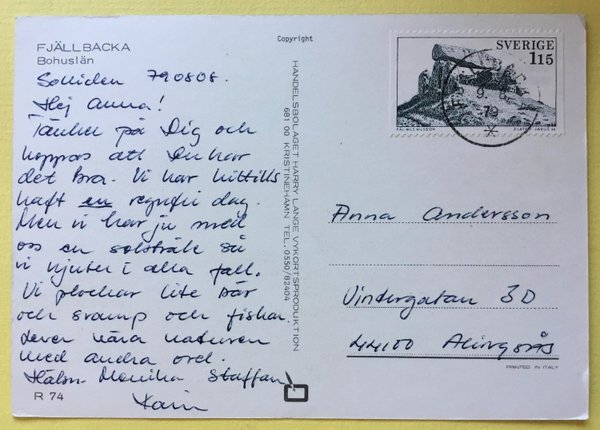 FJÄLLBACKA
Bohuslän
Solliden 790808.
Hej Anna!
Tänker på Dig och
hoppas att Du har
det bra. Vi har hittills
haft en regnfri dag.
Men vi har ju med
oss en solstråle så
vi njuter i alla fall.
Vi plockar lite bär
och svamp och fiskar.
Lever nära naturen
med andra ord.
Hälsn. Monika Staffan
Karin
R 74
Copyright
HANDELSBOLAGET HARRY LANGE VYKORTSPRODUKTION
681 00 KRISTINEHAMN TEL. 0550/82404
SVERIGE
115
PÅL-NILS NILSSON
Anna Andersson
Vintergatan 3D
44100 Alingsås
PRINTED IN ITALY